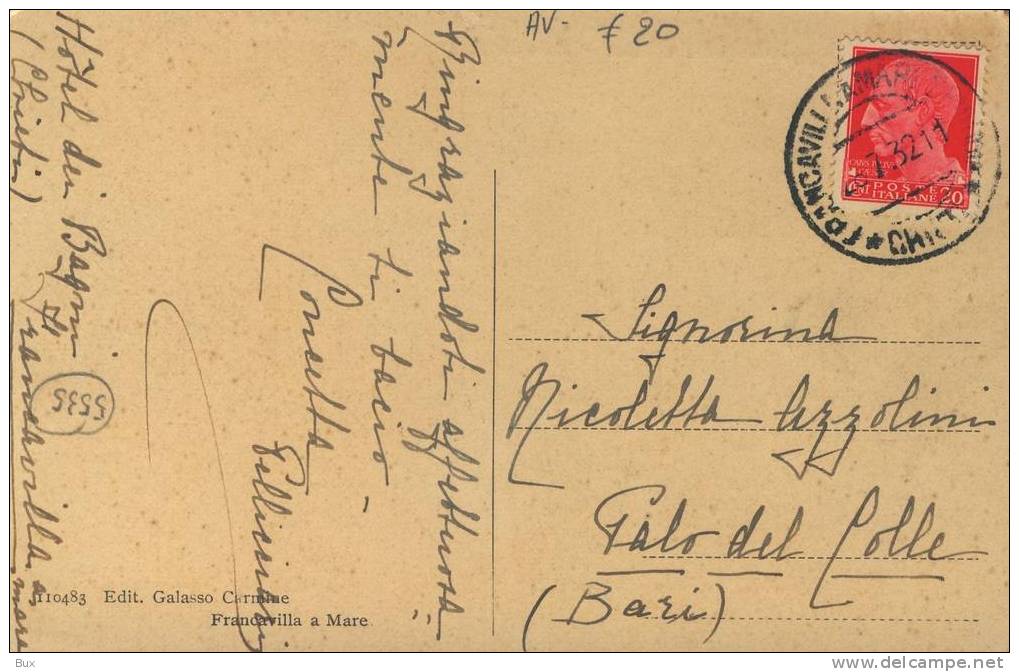 AV- £ 20
Ringraziandoti affettuosa=
mente ti bacio
Conetta
Pellicciari
Hôtel dei Bagni Francavilla a mare
(Chieti)
5535
110483 Edit. Galasso Carmine
Francavilla a Mare
FRANCAVILLA A MAR
7.32 11
POSTE
ITALIANE
20
Signorina
Nicoletta Azzolini
Palo del Colle
(Bari)
Bux
delcampe.net